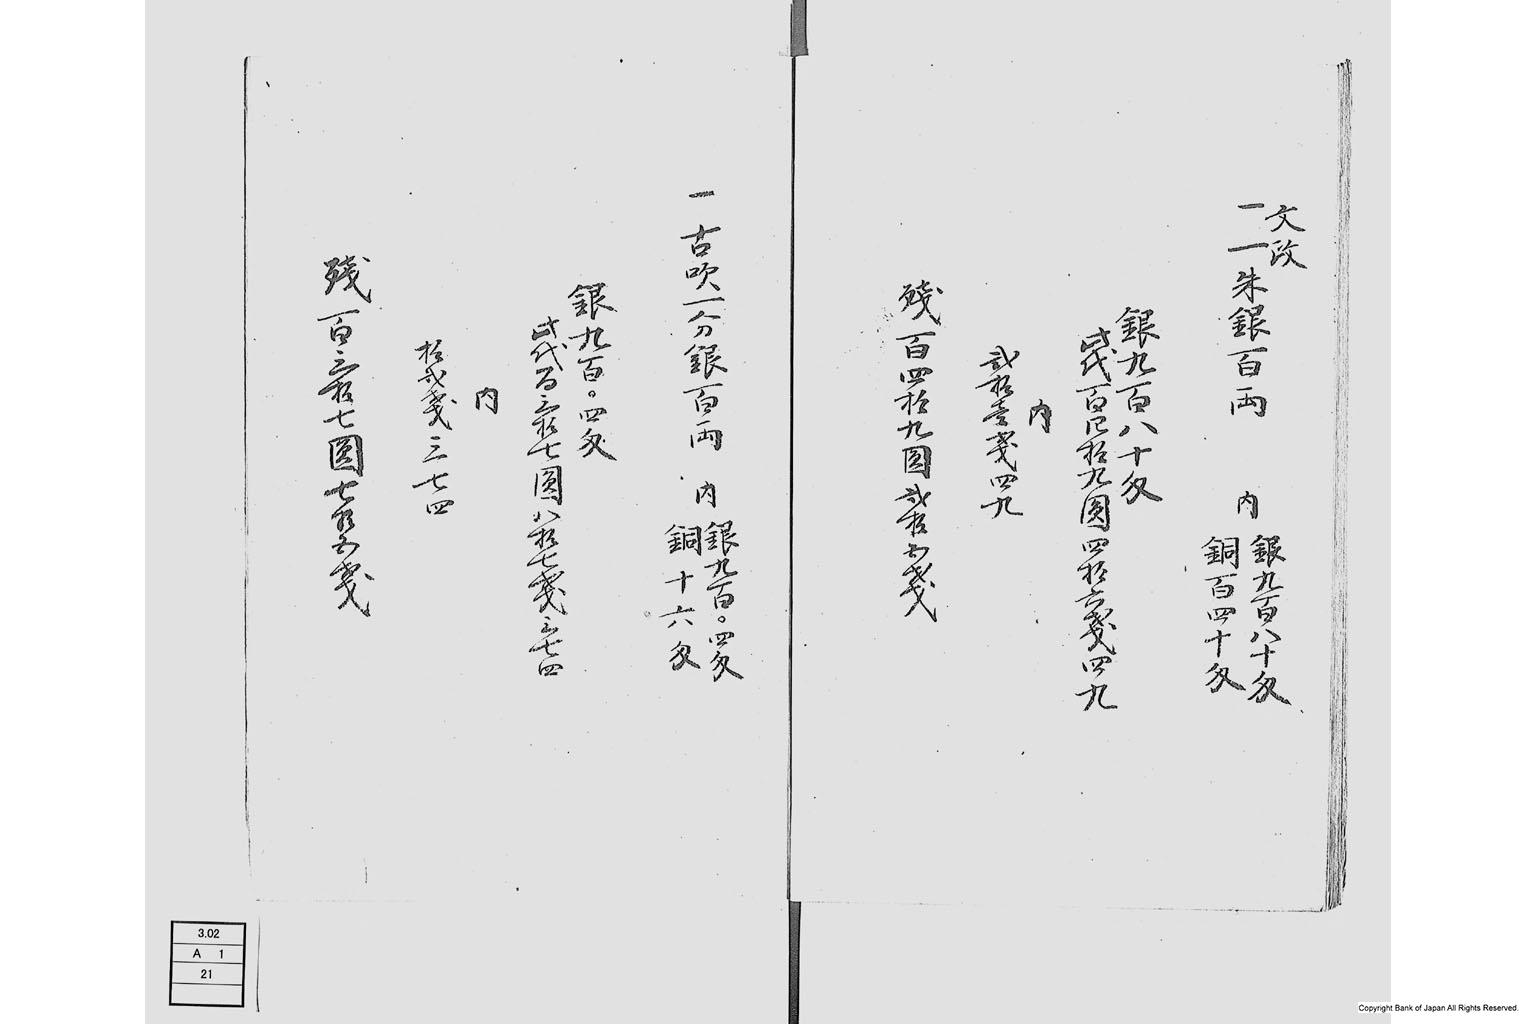 文政
一 一朱銀百両 内
銀九百八十匁
銅百四十匁
銀九百八十匁
此代百四拾九圓四拾六戔四九
内
弐拾壱戔四九
残百四拾九圓弐拾五戔
一 古吹一分銀百両 内
銀九百〇四匁
銅十六匁
銀九百〇四匁
此代百三拾七圓八拾七戔三七四
内
拾弐戔三七四
残百三拾七圓七拾五戔
3.02
A 1
21
Copyright Bank of Japan All Rights Reserved.